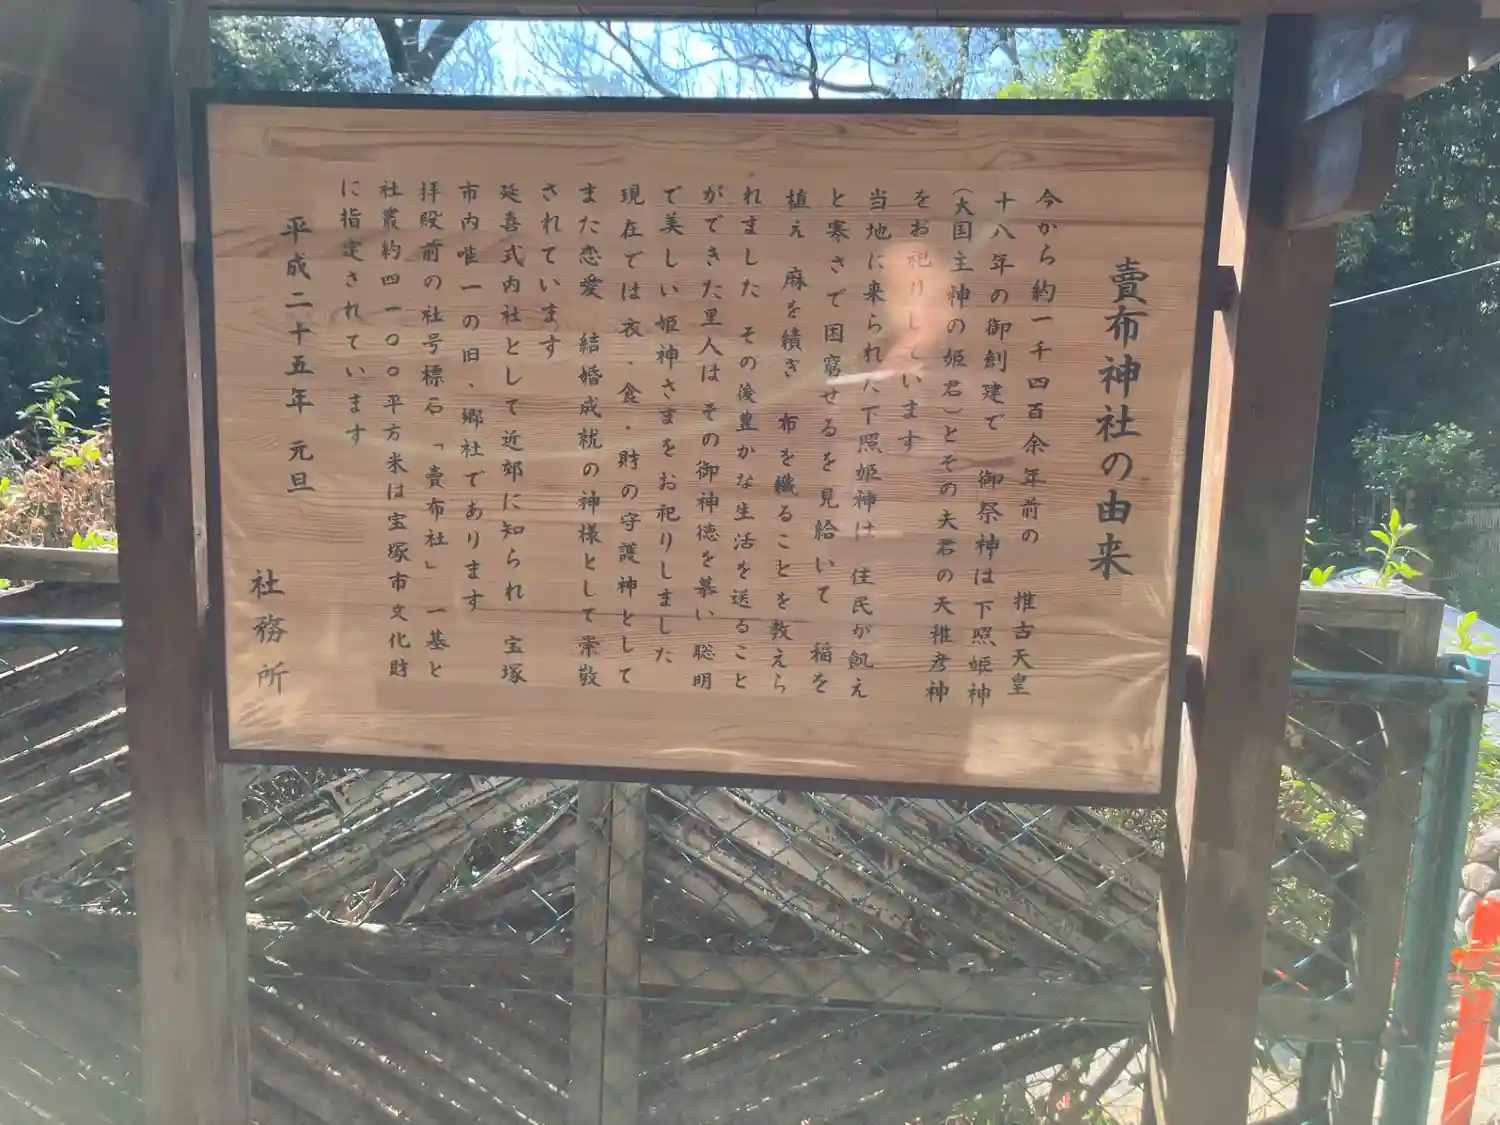 賣布神社の由来
今から約一千四百余年前の 推古天皇
十八年の御創建で 御祭神は下照姫神
(大国主神の姫君)とその夫君の天稚彦神
をお祀りしています
当地に来られた下照姫神は 住民が飢え
と寒さで困窮せるを見給いて 稲を
植え 麻を績ぎ 布を織ることを教えら
れました その後豊かな生活を送ること
ができた里人は その御神徳を慕い 聡明
で美しい姫神さまをお祀りしました
現在では衣、食・財の守護神として
また恋愛 結婚成就の神様として崇敬
されています
延喜式内社として近郊に知られ 宝塚
市内唯一の旧、郷社であります
拝殿前の社号標石「賣布社」 一基と
社叢約四一〇〇平方米は宝塚市文化財
に指定されています
平成二十五年 元旦
社務所